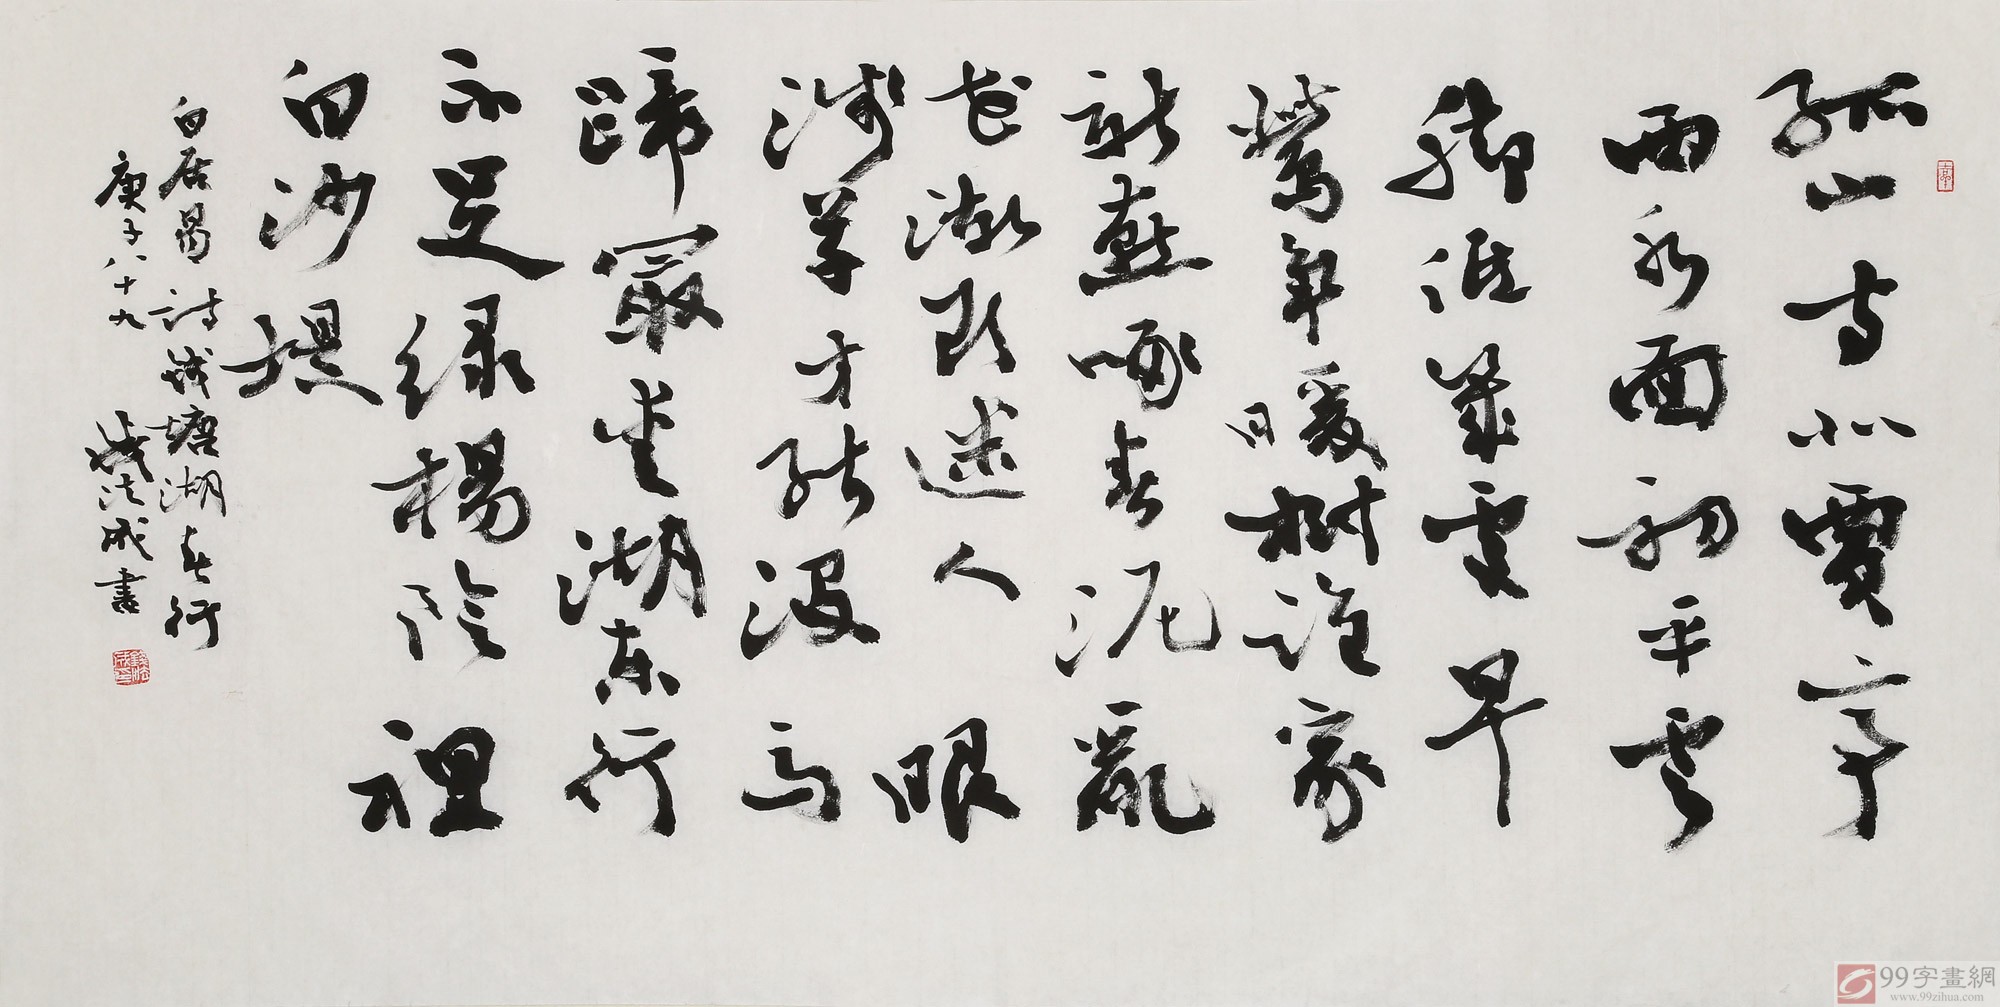 孤山寺北賈亭
西水面初平雲
脚低幾處早
鶯争暖樹誰家
新燕啄春泥亂
花漸欲迷人眼
淺草才能没馬
蹄最愛湖東行
不足緑楊陰裡
白沙堤
白居易詩錢塘湖春行
庚子八十九 錢法成書
錢法成印
99字畫網
www.99zihua.com